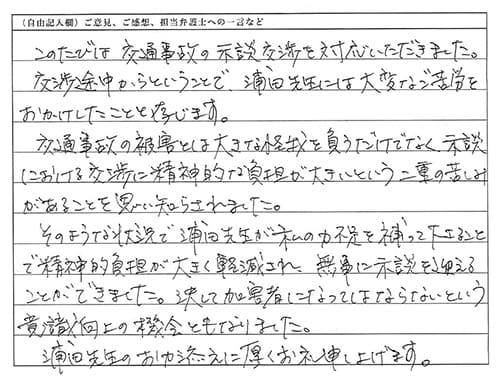 （自由記入欄）ご意見、ご感想、担当弁護士への一言など
このたびは 交通事故の示談交渉を対応いただきました。
交渉途中からということで、浦田先生には大変なご苦労を
おかけしたことと存じます。
交通事故の被害とは大きな怪我を負うだけでなく、示談
における交渉に精神的な負担が大きいという二重の苦しみ
があることを思い知らされました。
そのような状況で浦田先生が私の力不足を補って下さること
で精神的負担が大きく軽減され、無事に示談を迎える
ことができました。決して加害者になってはならないという
意識向上の機会ともなりました。
浦田先生のお力添えに厚くお礼申し上げます。